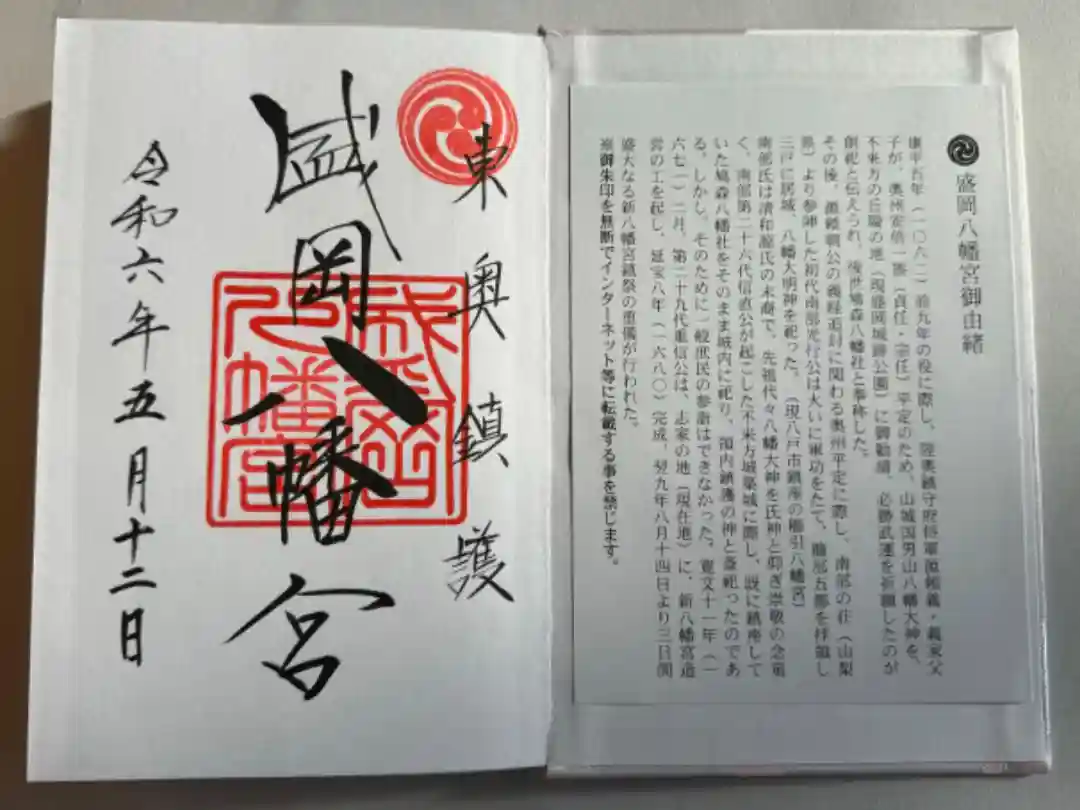 盛岡八幡宮御由緒
康平五年(一〇六二)前九年の役に際し、陸奥鎮守府将軍源頼義・義家父
子が、奥州安倍一族(貞任・宗任)平定のため、山城国男山八幡大神を、
不来方の丘陵の地(現盛岡城跡公園)に御勧請、必勝武運を祈願したのが
創祀と伝えられ、後世鳩森八幡社と奉称した。
その後、源頼朝公の義経追討に関わる奥州平定に際し、南部の荘(山梨
県)より参陣した初代南部光行公は大いに軍功をたて、糠部五郡を拝領し
三戸に居城、八幡大明神を祀った。(現八戸市鎮座の櫛引八幡宮)
南部氏は清和源氏の末裔で、先祖代々八幡大神を氏神と仰ぎ崇敬の念篤
く、南部第二十六代信直公が起こした不来方城築城に際し、既に鎮座して
いた鳩森八幡社をそのまま城内に祀り、領内鎮護の神と斎祀ったのであ
る。しかし、そのために一般庶民の参詣はできなかった。寛文十一年(一
六七一)二月、第二十九代重信公は、志家の地(現在地)に、新八幡宮造
営の工を起し、延宝八年(一六八〇)完成、翌九年八月十四日より三日間
盛大なる新八幡宮鎮祭の重儀が行われた。
※御朱印を無断でインターネット等に転載する事を禁じます。
東奥鎮護
盛岡八幡宮
盛岡
八幡宮
令和六年五月十二日